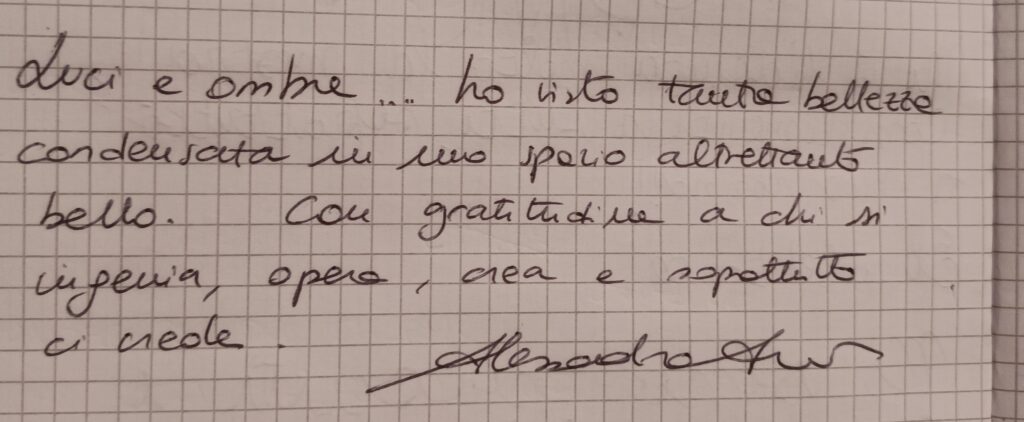 Luci e ombre... ho visto tanta bellezza
condensata in uno spazio altrettanto
bello. Con gratitudine a chi si
ingenia, opera, crea e soprattutto
ci crede.